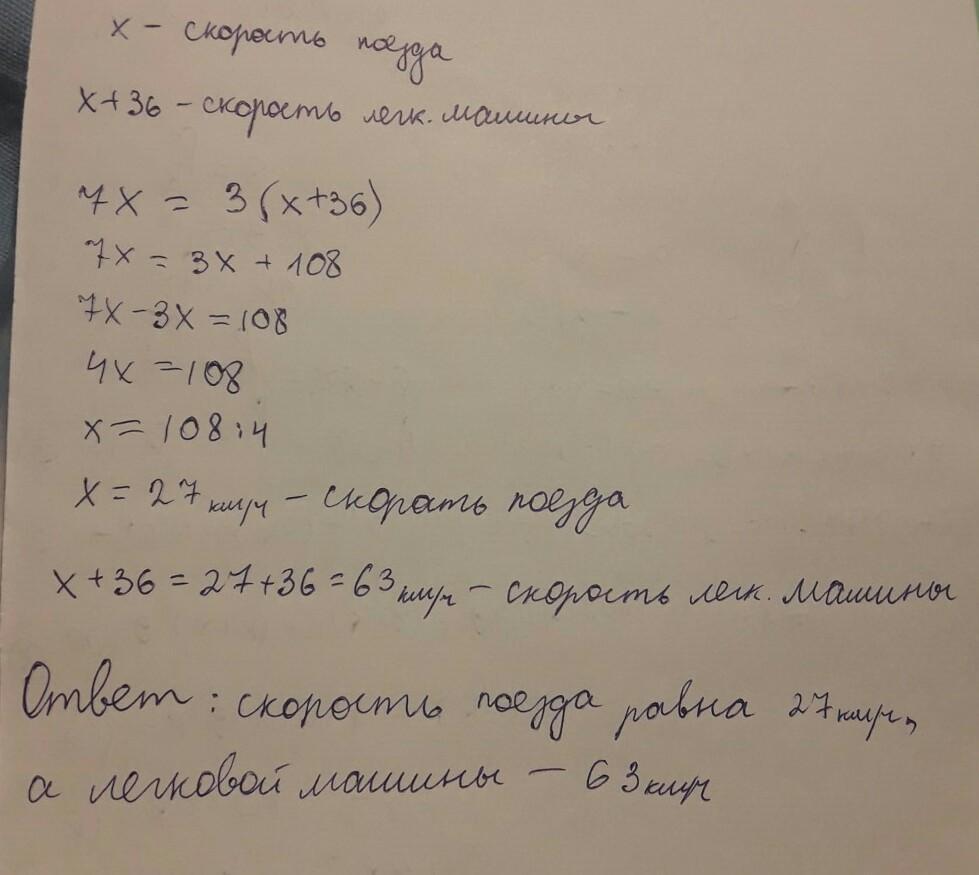 x - скорость поезда
x+36 - скорость легк. машины
7x = 3(x+36)
7x = 3x + 108
7x-3x = 108
4x = 108
x = 108:4
x = 27 км/ч - скорать поезда
x+36 = 27+36 = 63 км/ч - скорость легк. машины
Ответ: скорость поезда равна 27 км/ч,
а легковой машины - 63 км/ч